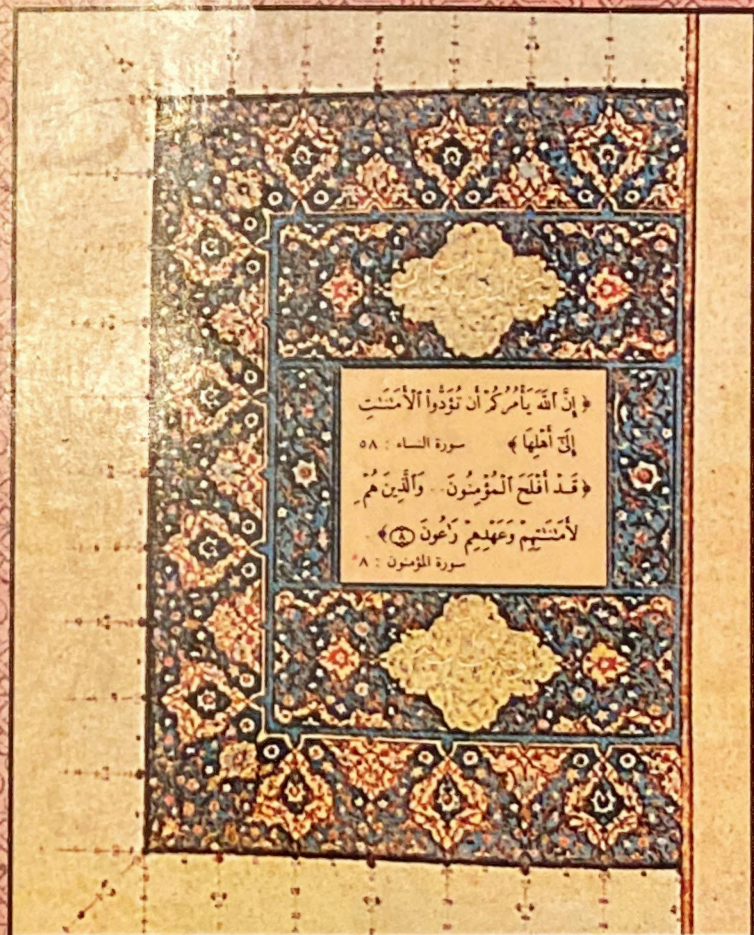 ﴿ إِنَّ ٱللَّهَ يَأْمُرُكُمْ أَن تُؤَدُّوا۟ ٱلْأَمَـٰنَـٰتِ
إِلَىٰٓ أَهْلِهَا ﴾ سورة النساء : ٥٨
﴿ قَدْ أَفْلَحَ ٱلْمُؤْمِنُونَ .. وَٱلَّذِينَ هُمْ
لِأَمَـٰنَـٰتِهِمْ وَعَهْدِهِمْ رَٰعُونَ ﴿٨﴾ ﴾
سورة المؤمنون : ٨